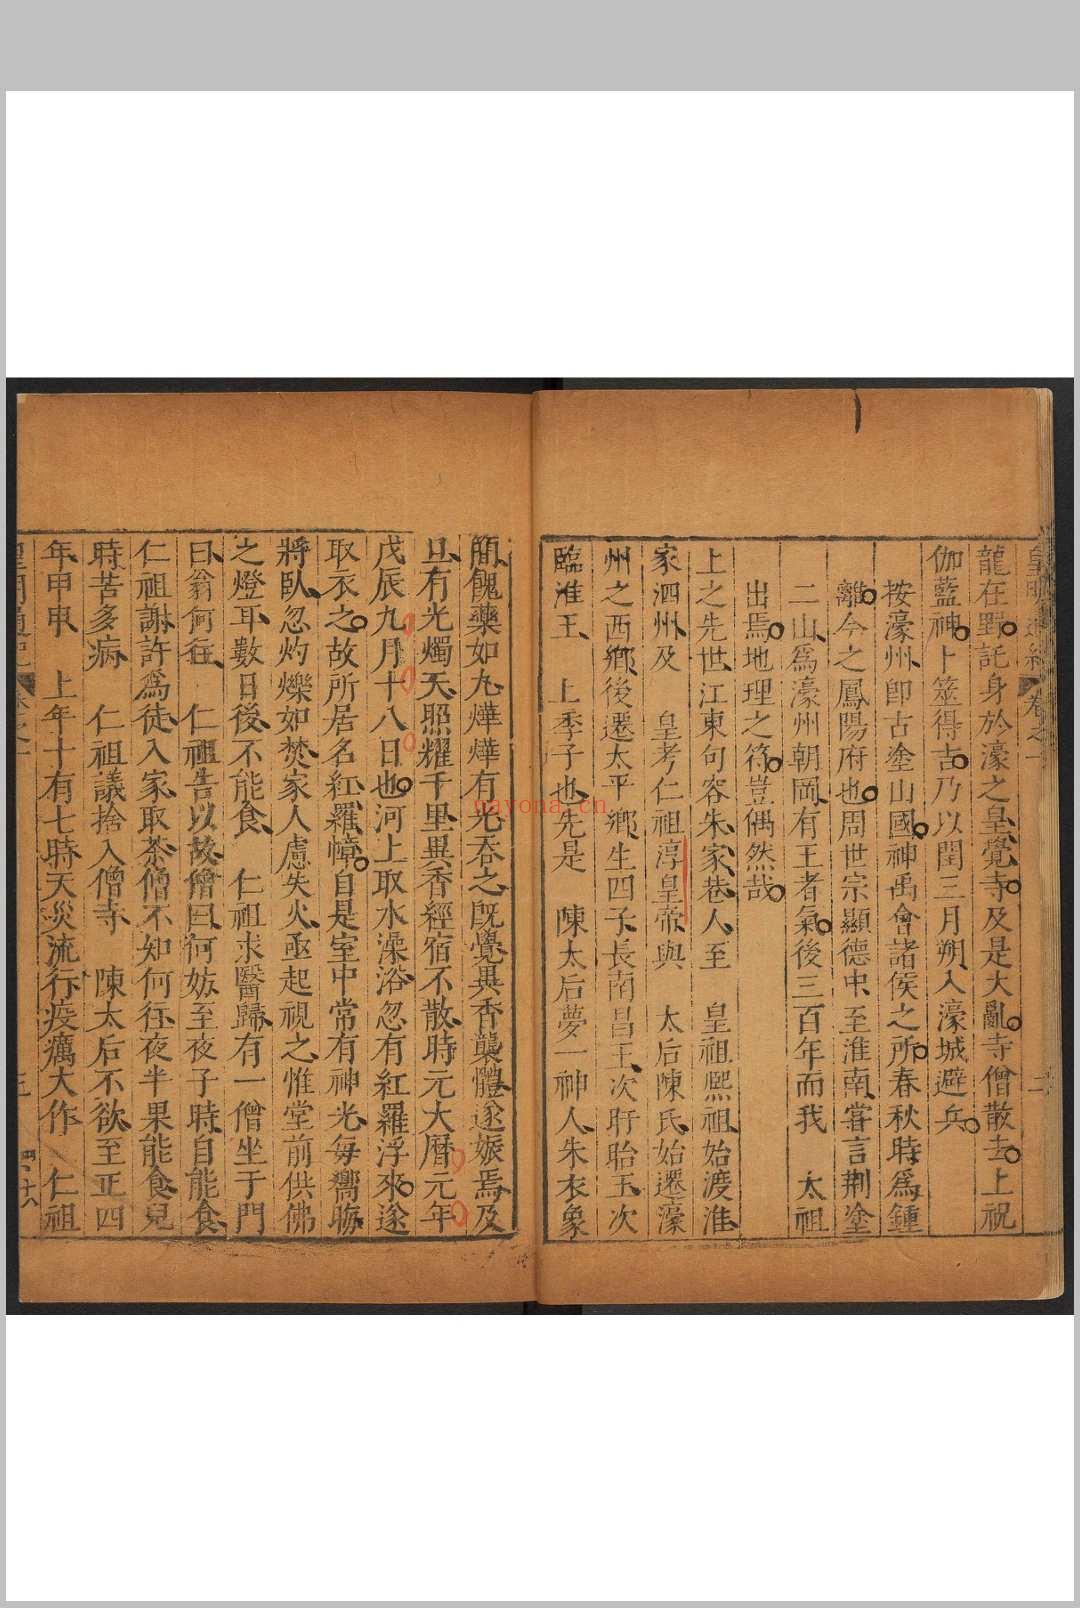 皇明通紀 卷之一 二
龍在野託身於濠之皇覺寺及是大亂寺僧散去上祝
伽藍神卜筮得吉乃以閏三月朔入濠城避兵
按濠州即古塗山國神禹會諸侯之所春秋時爲鍾
離今之鳳陽府也周世宗顯德中至淮南嘗言荆塗
二山爲濠州朝岡有王者氣後三百年而我 太祖
出焉地理之符豈偶然哉
上之先世江東句容朱家巷人至 皇祖熙祖始渡淮
家泗州及 皇考仁祖淳皇帝與 太后陳氏始遷濠
州之西鄉後遷太平鄉生四子長南昌王次盱眙王次
臨淮王 上季子也先是 陳太后夢一神人朱衣象
簡餽藥如丸燁燁有光吞之旣覺異香襲體遂娠焉及
旦有光燭天照耀千里異香經宿不散時元大曆元年
戊辰九月十八日也河上取水澡浴忽有紅羅浮來遂
取衣之故所居名紅羅幛自是室中常有神光每嚮晦
將臥忽灼爍如焚家人慮失火亟起視之惟堂前供佛
之燈耳數日後不能食 仁祖求醫歸有一僧坐于門
曰翁何往 仁祖告以故僧曰何妨至夜子時自能食
仁祖謝許爲徒入家取茶僧不知何往夜半果能食兒
時苦多病 仁祖議捨入僧寺 陳太后不欲至正四
年甲申 上年十有七時天災流行疫癘大作 仁祖
nayona.cn